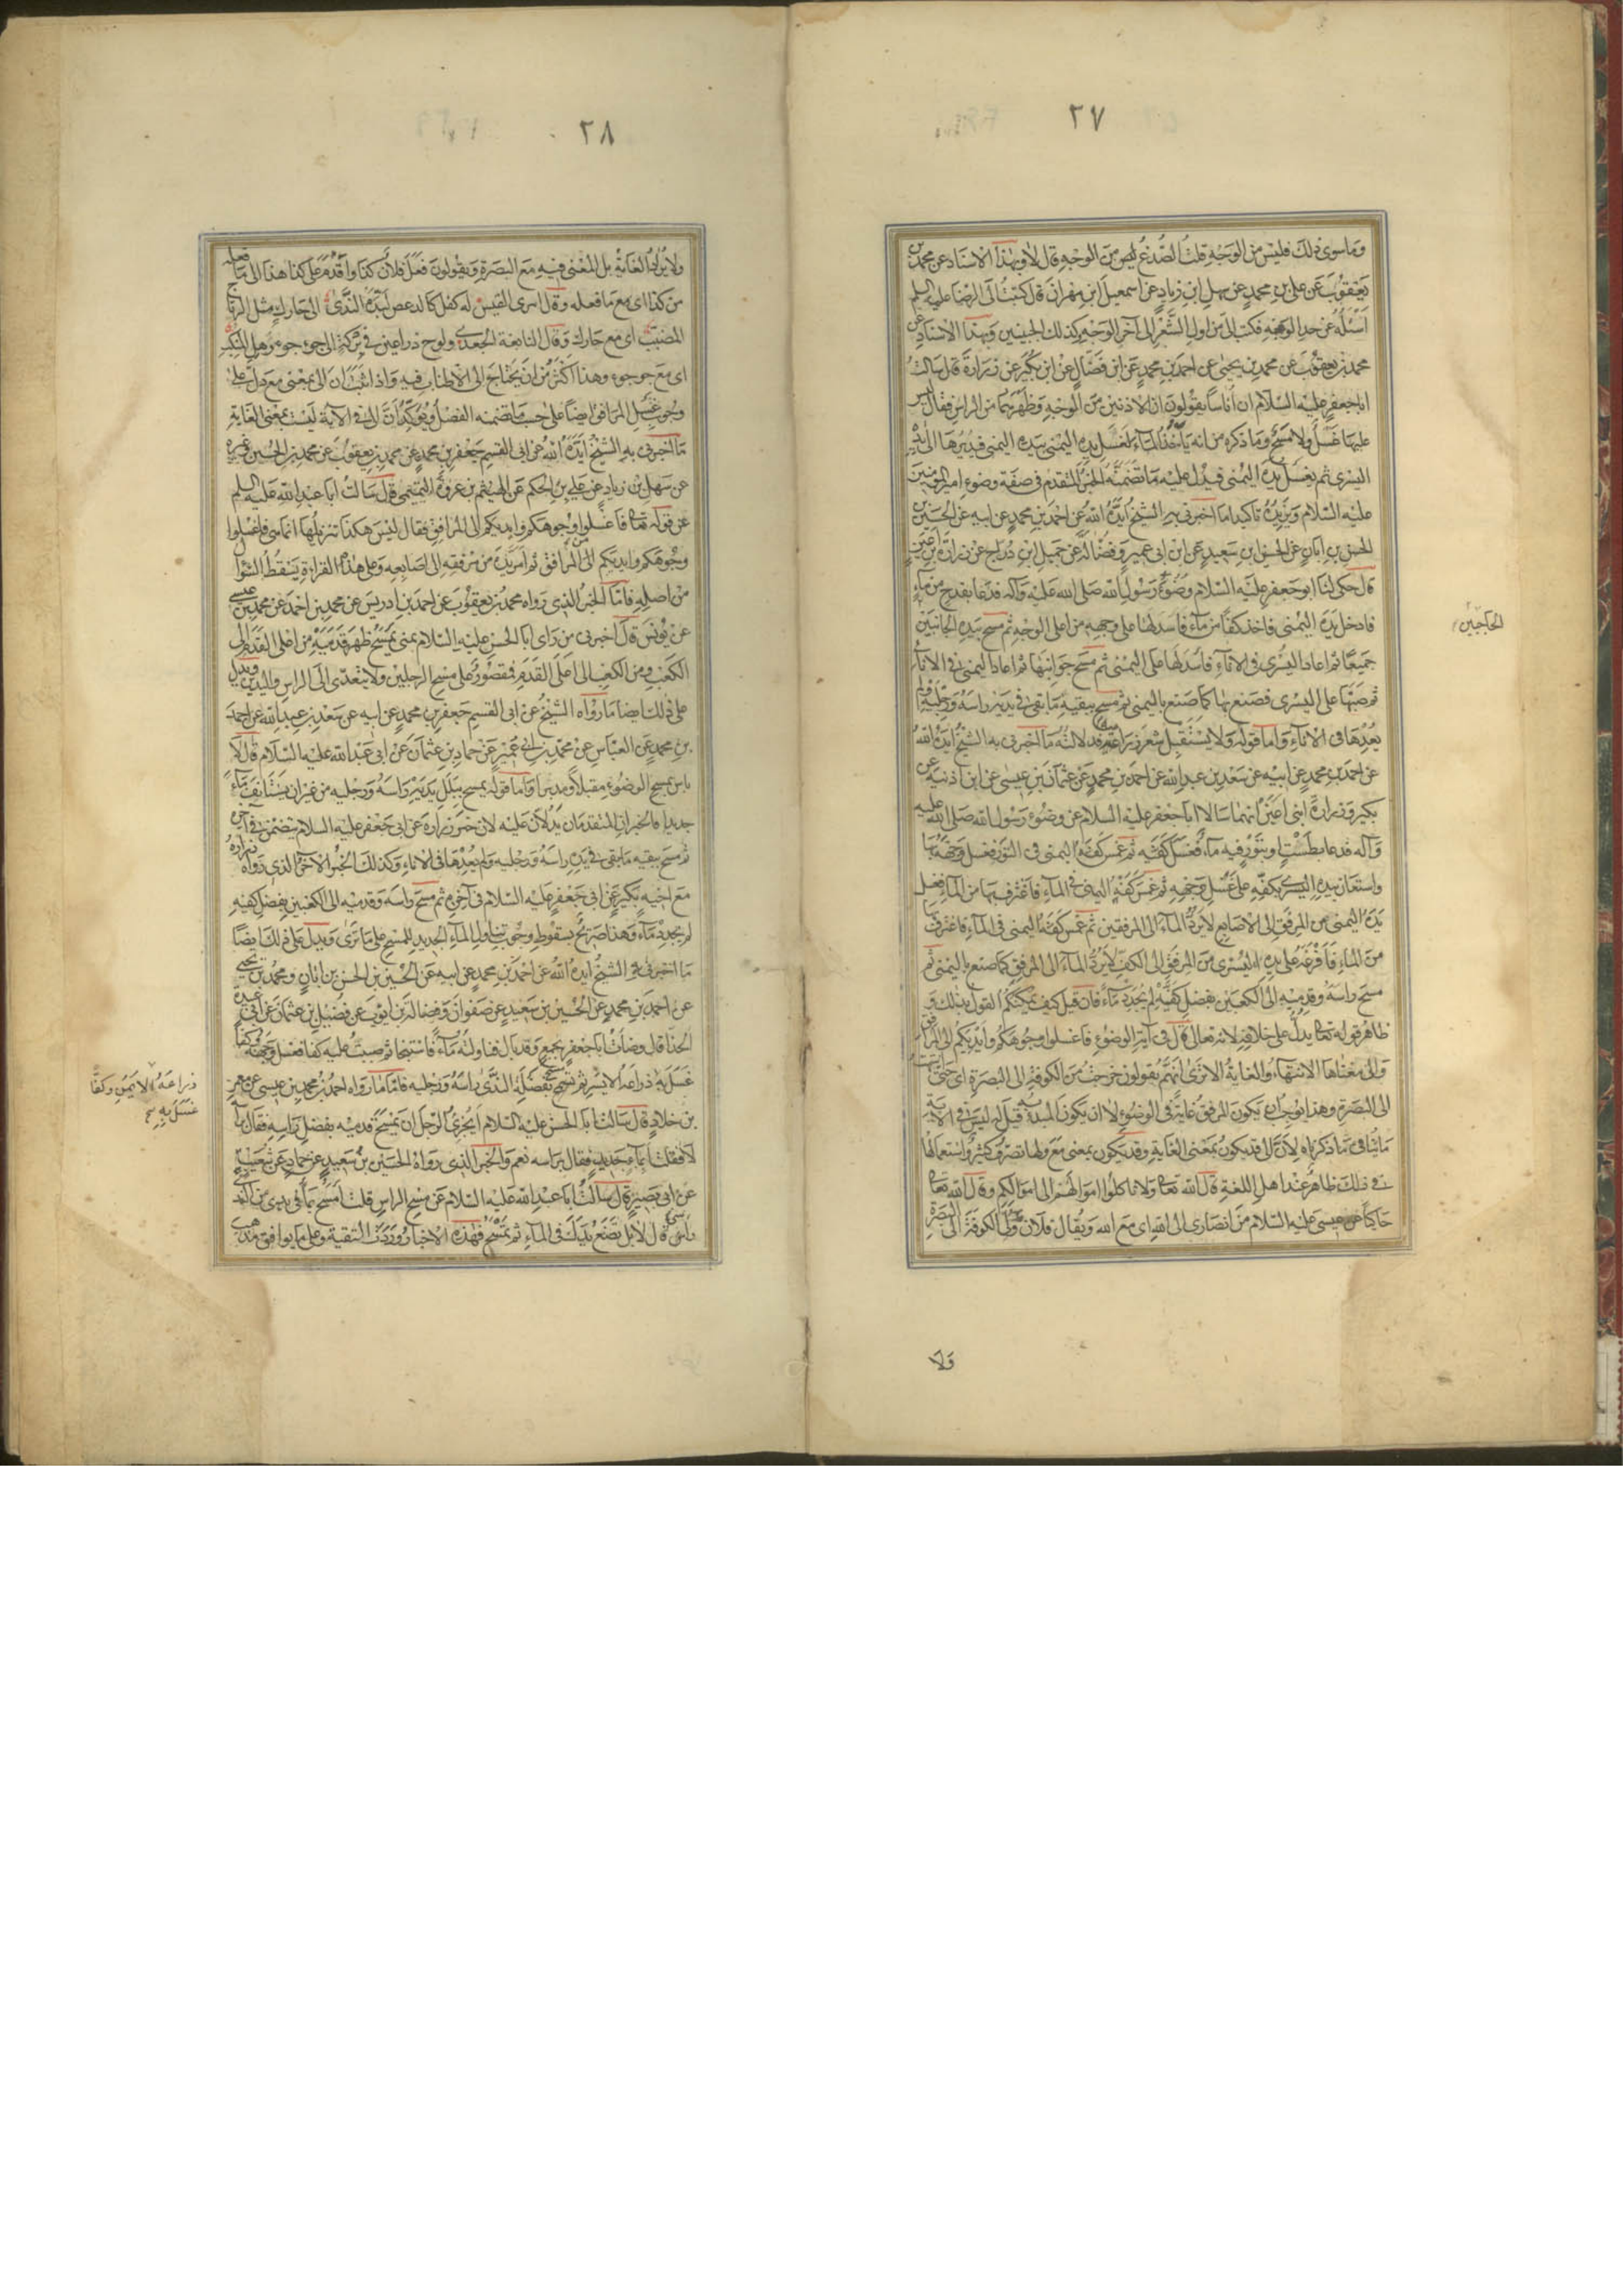 ٢٧
وما سوى ذلك فليس من الوجه قلت الصدغ ليس من الوجه قال لا وبهذا الاسناد عن محمد بن
يعقوب عن علي بن محمد عن سهل ابن زياد عن اسمعيل ابن مهران قال كتبت الى الرضا عليه السلم
اسئله عن حد الوجه فكتب الي من اول الشعر الى آخر الوجه وكذلك الجبينين وبهذا الاسناد عن
محمد بن يعقوب عن محمد بن يحيى عن احمد بن محمد عن ابن فضال عن ابن بكير عن زرارة قال سالت
ابا جعفر عليه السلام ان اناسا يقولون ان الاذنين من الوجه وظهرهما من الراس فقال ليس
عليهما غسل ولا مسح وما ذكره من انه ياخذ الماء لغسل يده اليمنى بيده اليمنى فيديرها الى يده
اليسرى ثم يغسل يده اليمنى فيدل عليه ما تضمنه الخبر المتقدم في صفة وضوء امير المؤمنين
عليه السلام ويزيده تاكيدا ما اخبرني به الشيخ ايده الله عن احمد بن محمد عن ابيه عن الحسين بن
الحسن بن ابان عن الحسين ابن سعيد عن ابن ابي عمير وفضالة عن جميل ابن دراج عن زرارة بن اعين
قال حكى لنا ابو جعفر عليه السلام وضوء رسول الله صلى الله عليه وآله فدعا بقدح من ماء
فادخل يده اليمنى فاخذ كفا من ماء فاسدلها على وجهه من اعلى الوجه ثم مسح بيده الجانبين
الحاجبين
جميعا ثم اعاد اليسرى في الاناء فاسدلها على اليمنى ثم مسح جوانبها ثم اعاد اليمنى في الاناء
ثم صبها على اليسرى فصنع بها كما صنع باليمنى ثم مسح ببقية ما بقى في يديه راسه ورجليه ولم
يعدها في الاناء واما قوله ولا يستقبل شعر ذراعيه فدلالته ما اخبرني به الشيخ ايده الله
عن احمد بن محمد عن ابيه عن سعد بن عبد الله عن احمد بن محمد عن عثمان بن عيسى عن ابن اذينة عن
بكير وزرارة ابني اعين انهما سالا ابا جعفر عليه السلام عن وضوء رسول الله صلى الله عليه
وآله فدعا بطست او بتور فيه ماء فغسل كفيه ثم غمس كفه اليمنى في التور فغسل وجهه بها
واستعان بيده اليسرى بكفه على غسل وجهه ثم غمس كفه اليمنى في الماء فاغترف بها من الماء فغسل
يده اليمنى من المرفق الى الاصابع لا يرد الماء الى المرفقين ثم غمس كفه اليمنى في الماء فاغترف بها
من الماء فافرغه على يده اليسرى من المرفق الى الكف لا يرد الماء الى المرفق كما صنع باليمنى ثم
مسح راسه وقدميه الى الكعبين بفضل كفيه لم يجدد ماء فان قيل كيف يمكنكم القول بذلك و
ظاهر قوله تعالى يدل على خلافه لانه تعالى قال في آية الوضوء فاغسلوا وجوهكم وايديكم الى المرافق
والى معناها الانتهاء والغاية الا ترى انهم يقولون خرجت من الكوفة الى البصرة اي حتى انتهيت
الى البصرة وهذا يوجب ان يكون المرفق غاية في الوضوء لا ان يكون المبدء به قيل له ليس في الآية
ما ينافي ما ذكرناه لان الى قد يكون بمعنى الغاية وقد يكون بمعنى مع ولها تصرف كثير واستعمالها
في ذلك ظاهر عند اهل اللغة قال الله تعالى ولا تاكلوا اموالهم الى اموالكم وقال الله تعالى
حاكيا عن عيسى عليه السلام من انصارى الى الله اى مع الله ويقال فلان ولي الكوفة الى البصرة
ولا
٢٨
ولا يراد الغاية بل المعنى فيه مع البصرة ويقولون فعل فلان كذا واقدم على كذا هذا الى ما فعله
من كذا اى مع ما فعله وقال امرى القيس له كفل كالدعص لبده الندى الى حارك مثل الرتاج
المضبب اى مع حارك وقال النابغة الجعدي ولوح ذراعين في بركة الى جؤجؤ رهل المنكب
اى مع جوجوء وهذا اكثر من ان يحتاج الى الاطناب فيه واذا ثبت ان الى بمعنى مع دل على
وجوب غسل المرافق ايضا على حسب ما تضمنه الفصل ويؤكد ان الى في الآية ليست بمعنى الغاية
ما اخبرني به الشيخ ايده الله عن ابي القسم جعفر بن محمد عن محمد بن يعقوب عن محمد بن الحسين وغيره
عن سهل بن زياد عن علي بن الحكم عن الهيثم بن عروة التميمي قال سالت ابا عبد الله عليه السلم
عن قوله تعالى فاغسلوا وجوهكم وايديكم الى المرافق فقال ليس هكذا تنزيلها انما هي فاغسلوا
وجوهكم وايديكم من المرافق ثم امر يده من مرفقه الى اصابعه وعلى هذه القراءة يسقط السؤال
من اصله فاما الخبر الذى رواه محمد بن يعقوب عن احمد بن ادريس عن محمد بن احمد عن محمد بن عيسى
عن يونس قال اخبرني من راى ابا الحسن عليه السلام بمنى يمسح ظهر قدميه من اعلى القدم الى
الكعب ومن الكعب الى اعلى القدم فمقصور على مسح الرجلين ولا يتعدى الى الراس واليدين ويدل
على ذلك ايضا ما رواه الشيخ عن ابي القسم جعفر بن محمد عن ابيه عن سعد بن عبد الله عن احمد
بن محمد عن العباس عن محمد بن ابي عمير عن حماد بن عثمان عن ابي عبد الله عليه السلام قال لا
باس بمسح الوضوء مقبلا ومدبرا واما قوله يمسح ببلل يديه راسه ورجليه من غير ان يستانف ماء
جديدا فالخبران المتقدمان يدلان عليه لان خبر زرارة عن ابي جعفر عليه السلام يتضمن في آخره
ثم مسح ببقية ما بقى في يده راسه ورجليه ولم يعدها في الاناء وكذلك الخبر الآخر الذى رواه زرارة
مع اخيه بكير عن ابي جعفر عليه السلام في آخره ثم مسح راسه وقدميه الى الكعبين بفضل كفيه
لم يجدد ماء وهذا صريح بسقوط وجوب تناول الماء الجديد للمسح على ما ترى ويدل على ذلك ايضا
ما اخبرني به الشيخ ايده الله عن احمد بن محمد عن ابيه عن الحسين بن الحسن بن ابان ومحمد بن يحيى
عن احمد بن محمد عن الحسين بن سعيد عن صفوان وفضالة بن ايوب عن فضيل بن عثمان عن ابي عبيدة
الحذاء قال وضات ابا جعفر بجمع وقد بال فناولته ماء فاستنجا ثم صببت عليه كفا فغسل وجهه وكفا
غسل به ذراعه الايسر ثم مسح بفضلة الندى راسه ورجليه فاما ما رواه احمد بن محمد بن عيسى عن معمر
ذراعه الايمن وكفا
غسل به
بن خلاد قال سالت ابا الحسن عليه السلام ايجزى الرجل ان يمسح قدميه بفضل راسه فقال براسه
لا فقلت ابماء جديد فقال براسه نعم والخبر الذى رواه الحسين بن سعيد عن حماد عن شعيب
عن ابي بصير قال سالت ابا عبد الله عليه السلام عن مسح الراس قلت امسح بما في يدى من الندى
راسى قال لا بل تضع يدك في الماء ثم تمسح فهذه الاخبار وردت للتقية وعلى ما يوافق مذهب